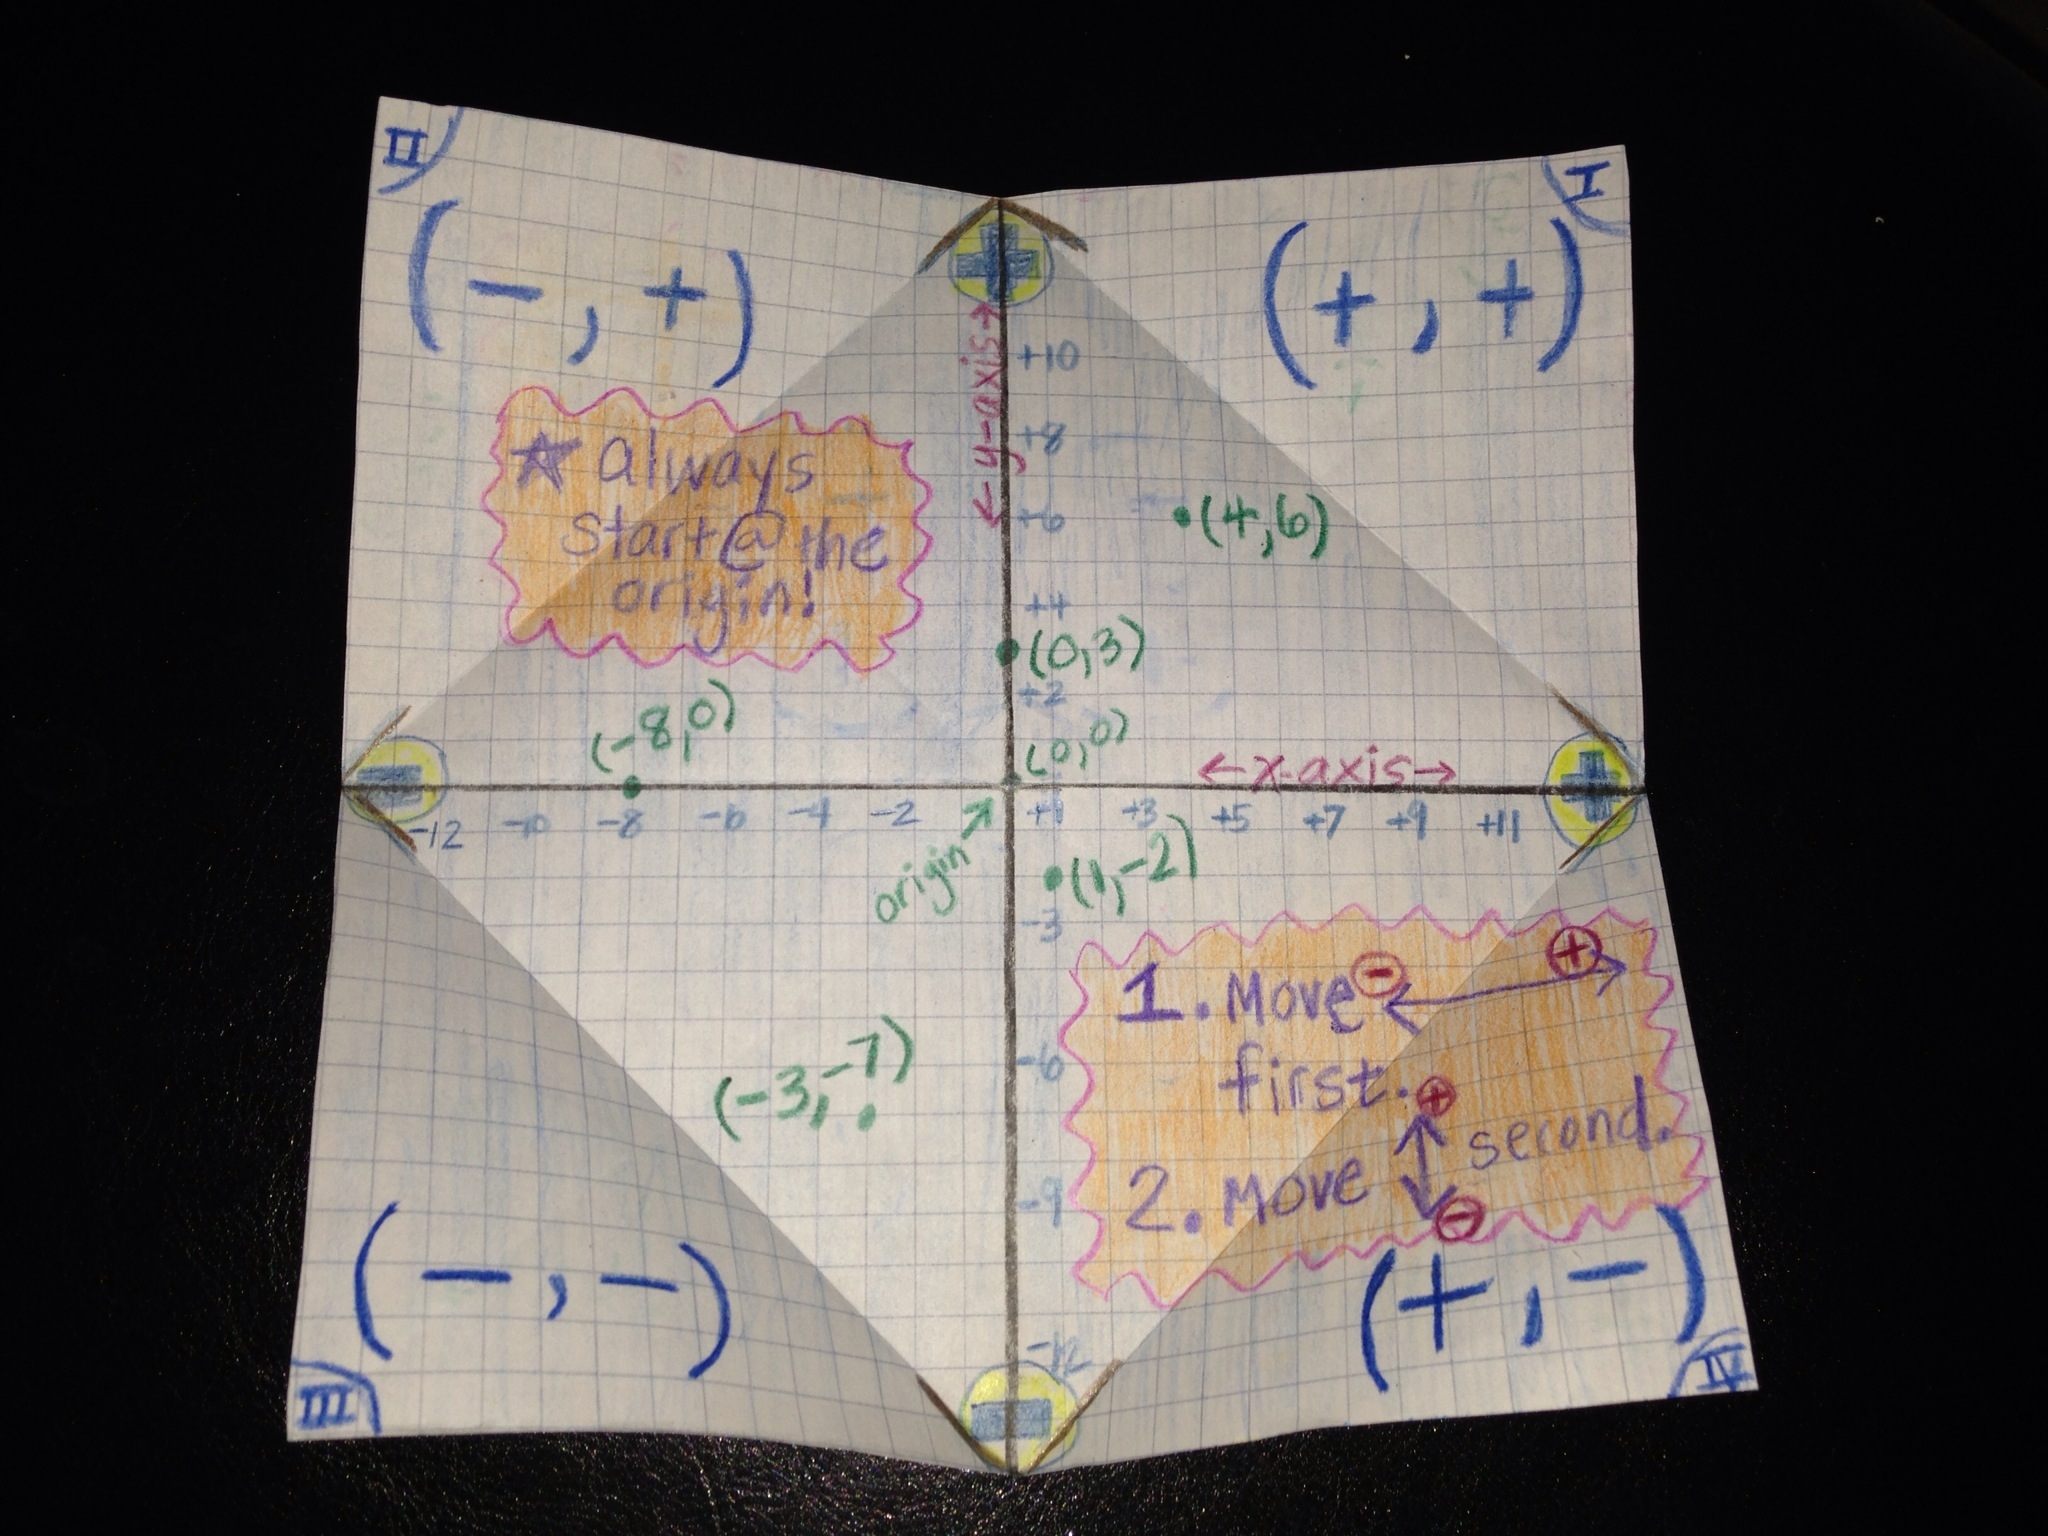 II
I
(-, +)
(+, +)
← y-axis →
+10
+8
+6
+4
+2
★ always
start @ the
origin!
•(4,6)
•(0,3)
(-8,0)
(0,0)
← x-axis →
-12 -10 -8 -6 -4 -2 +1 +3 +5 +7 +9 +11
origin →
•(1,-2)
-3
-6
-9
-12
(-3,-7)
1. Move ⊖ ↔ ⊕
first.
2. Move ⊕ ↕ ⊖ second.
(-, -)
(+, -)
III
IV